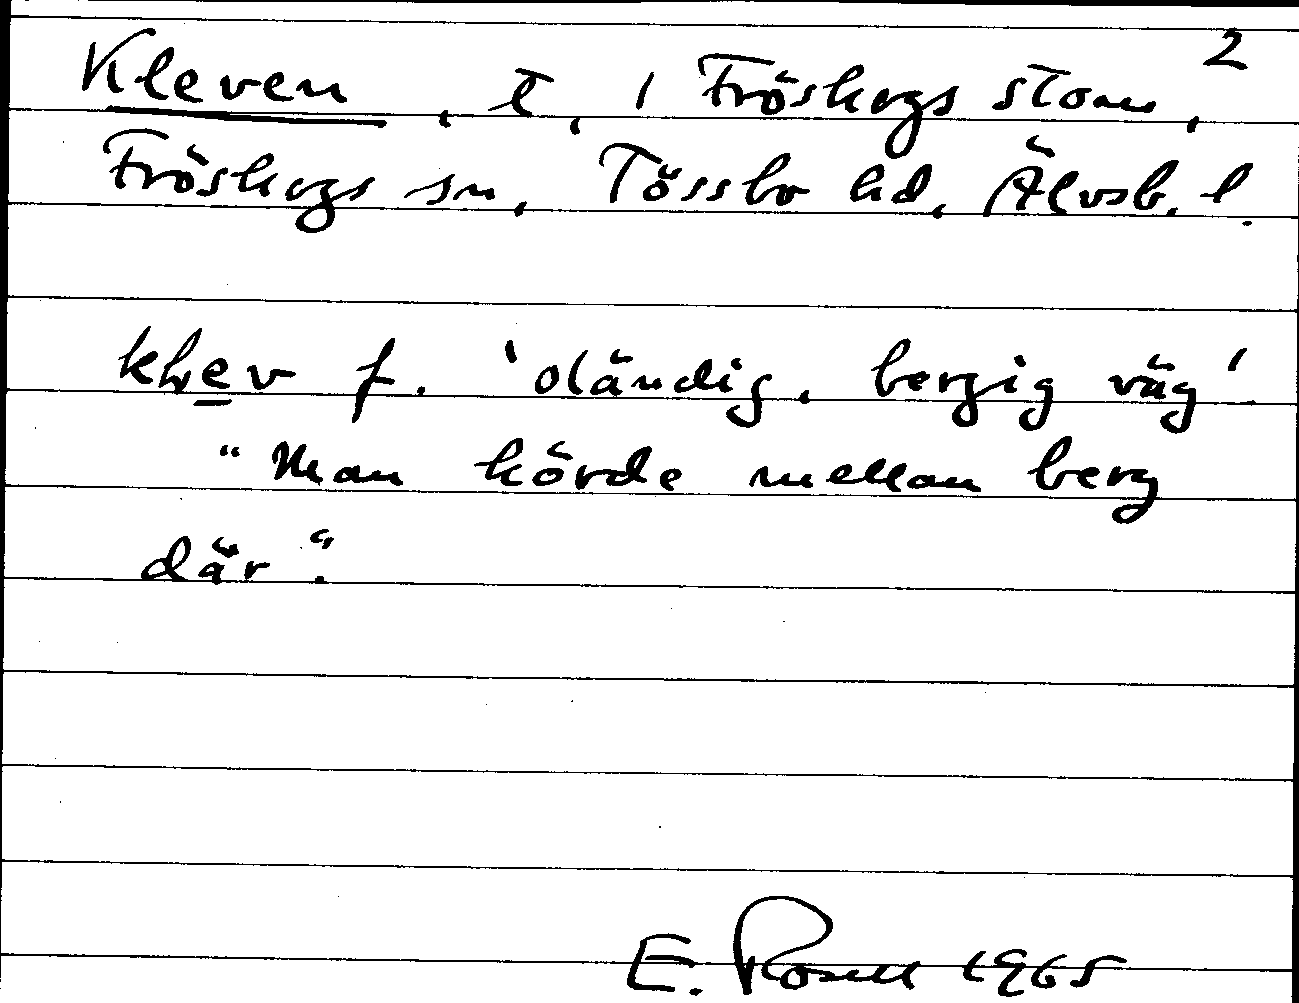 2
Kleven, t, i Fröskogs stom,
Fröskogs sn, Tössbo hd, Älvsb. l.
klev f. 'oländig, bergig väg'.
"Man körde mellan berg
där".
E. Rosell 1965